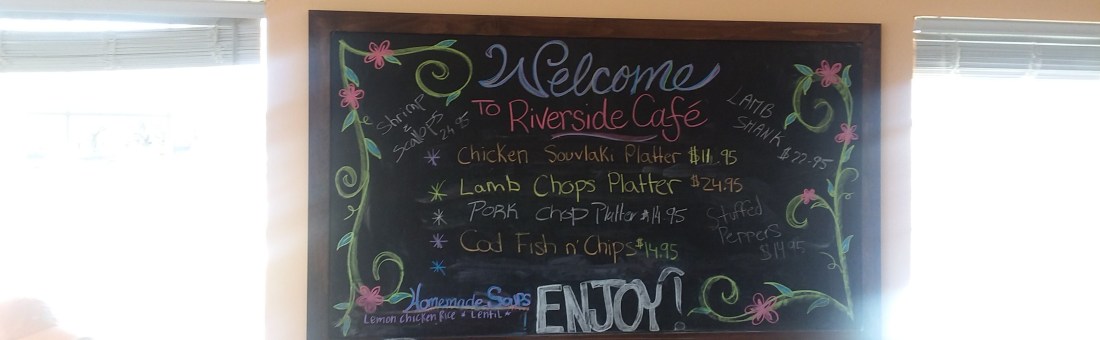 Welcome
To Riverside Café
Shrimp
&
Scallops
24.95
LAMB
SHANK
$22.95
* Chicken Souvlaki Platter $11.95
* Lamb Chops Platter $24.95
* Pork Chop Platter $14.95
* Cod Fish n' Chips $14.95
*
Stuffed
Peppers
$14.95
Homemade Soups
Lemon Chicken Rice * Lentil *
!
ENJOY!